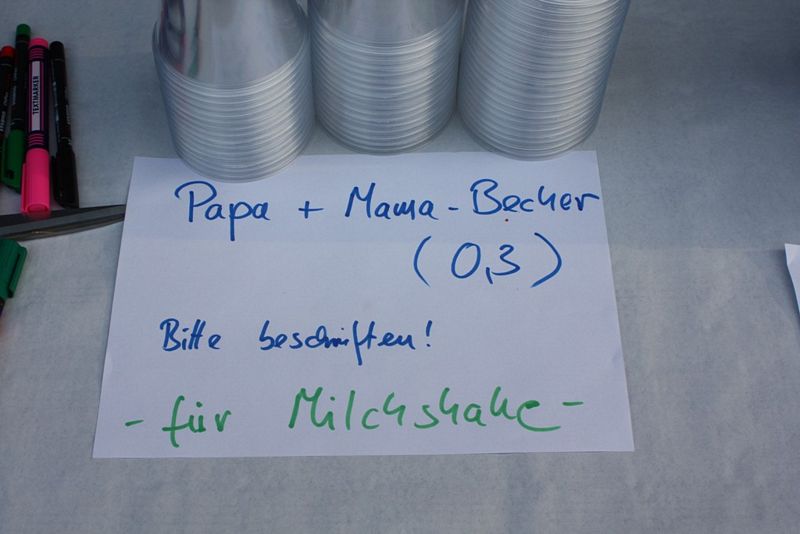 TEXTMARKER
Papa + Mama - Becher
(0,3)
Bitte beschriften!
- für Milchshake -